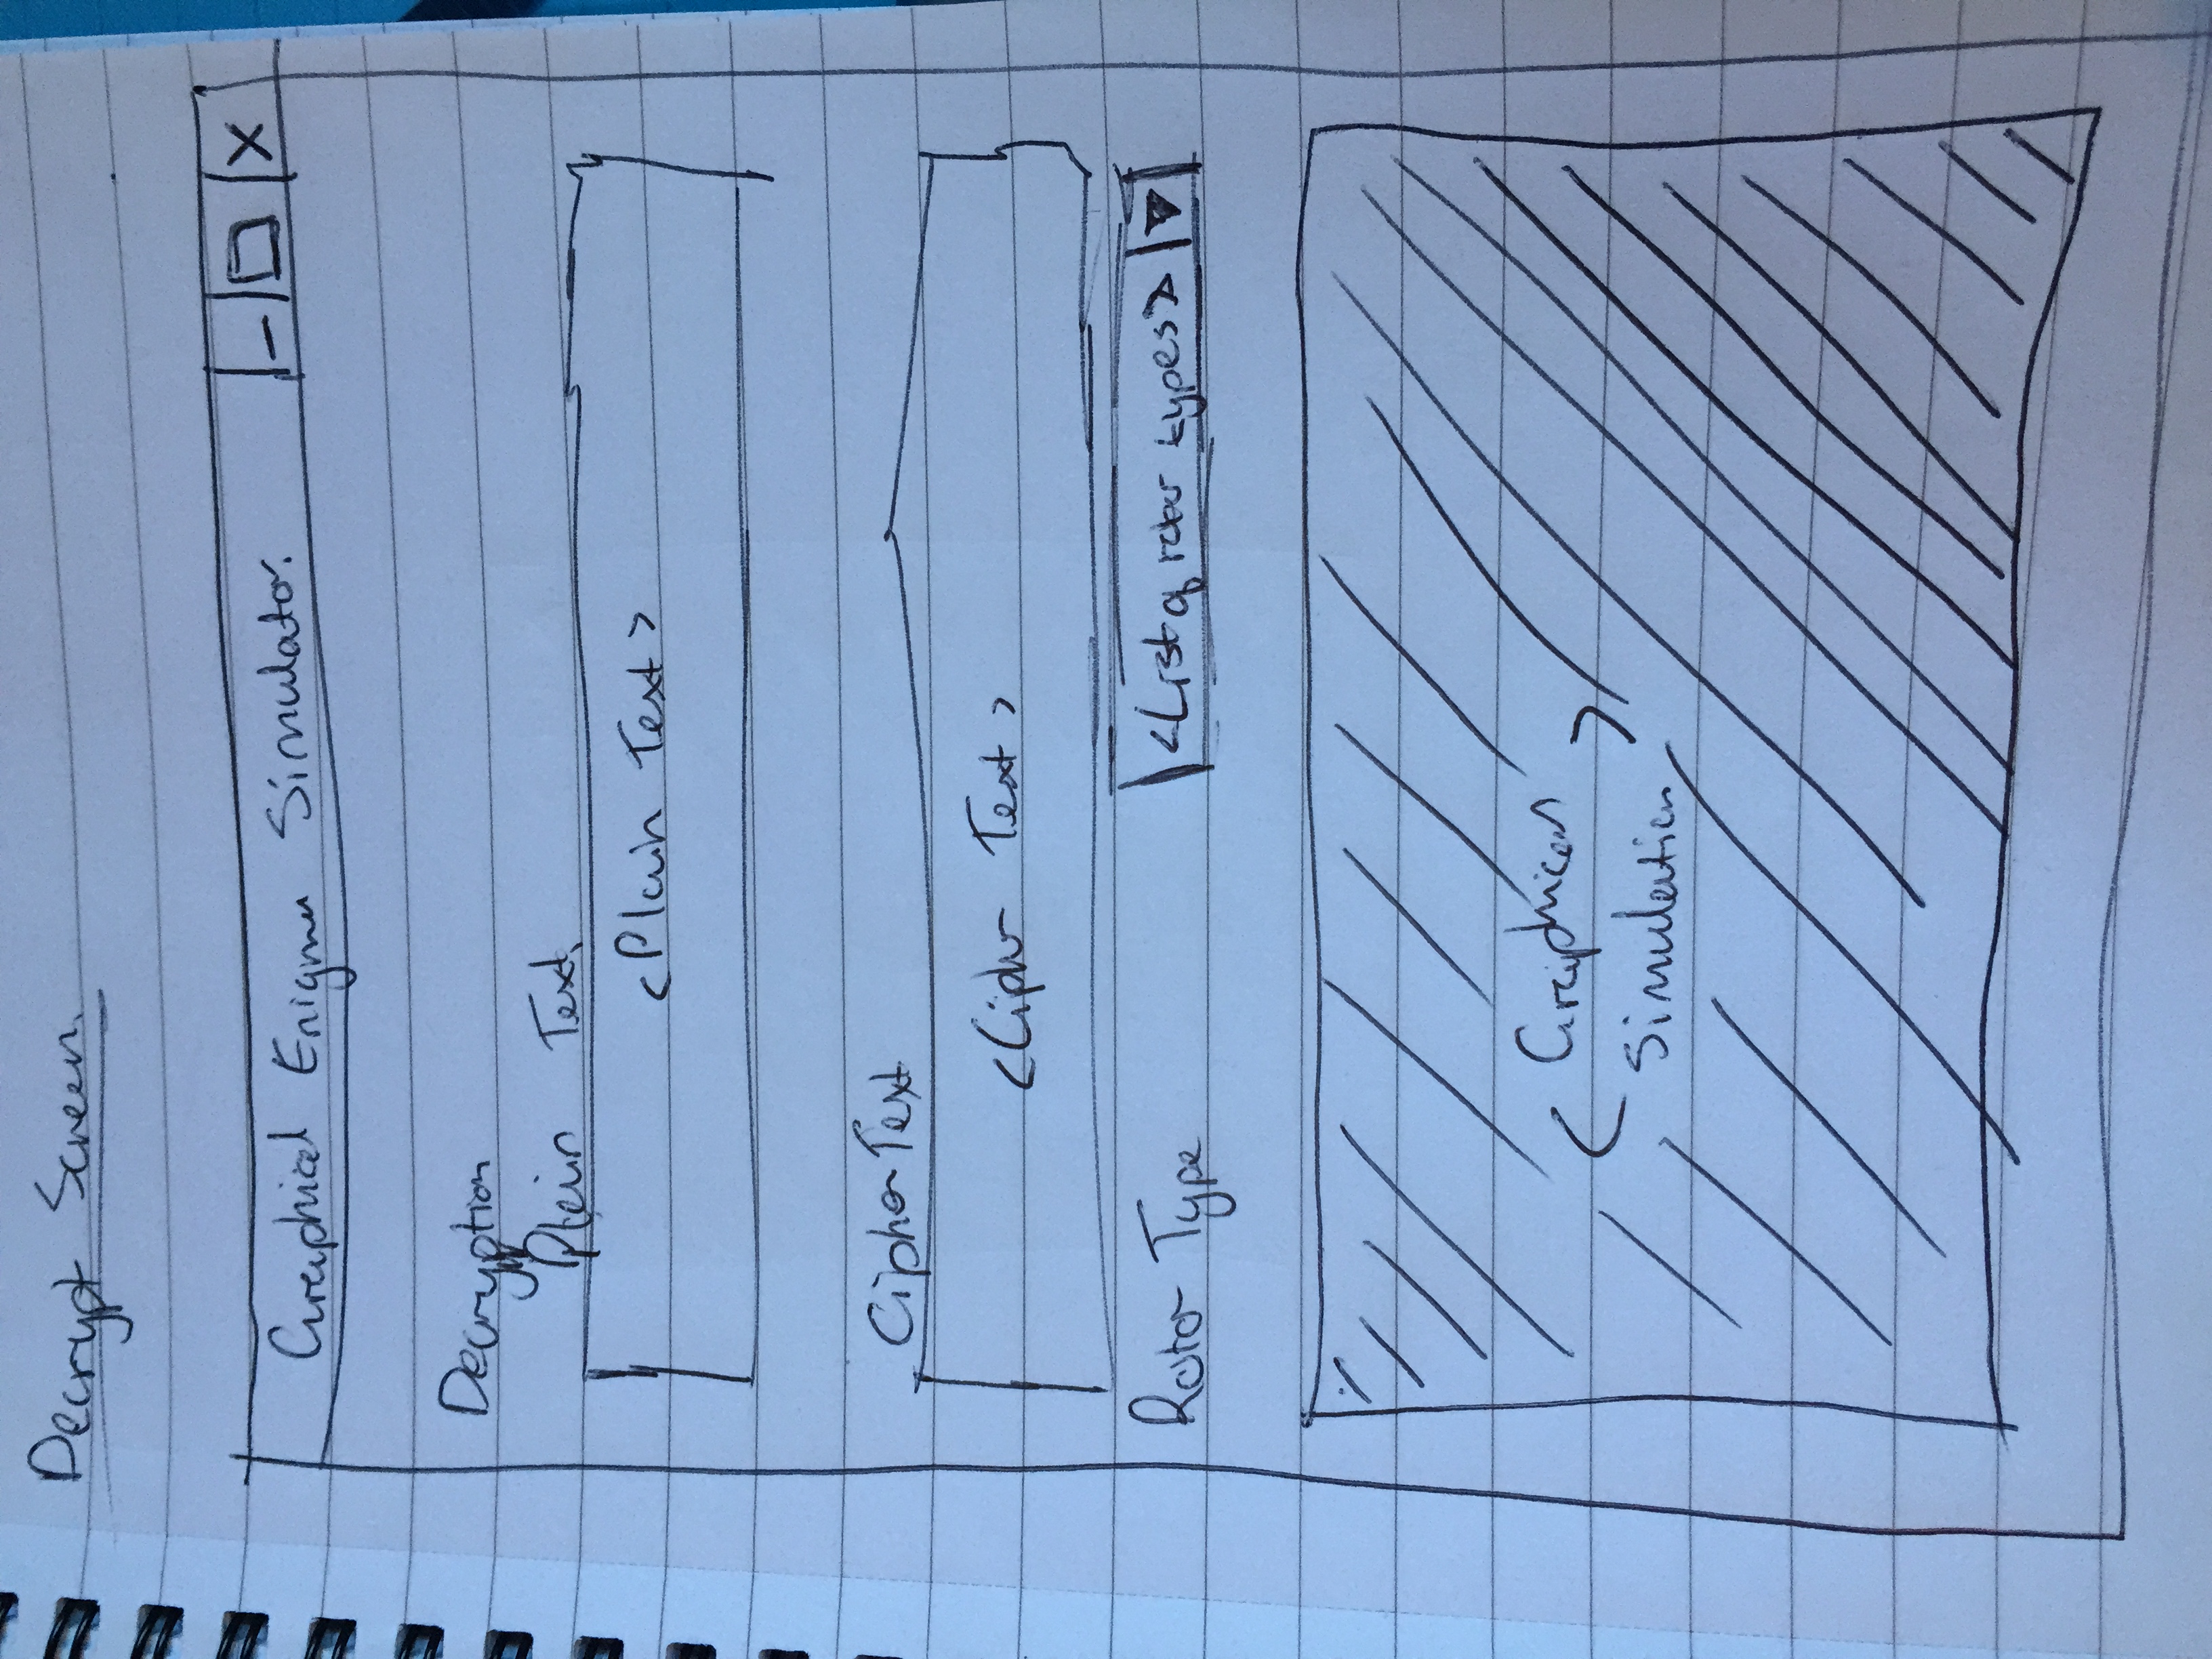 Decrypt Screen.
Graphical Enigma Simulator.
Decryption
Plain Text.
<Plain Text>
Cipher Text
<Cipher Text>
Rotor Type
<List of rotor types>
<Graphical
Simulation>